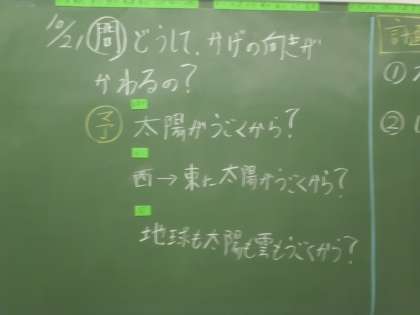 10/21 問 どうして、かげの向きが
かわるの？
予 太陽がうごくから？
西→東に太陽がうごくから？
地球も太陽も雲もうごくから？
計
①
②